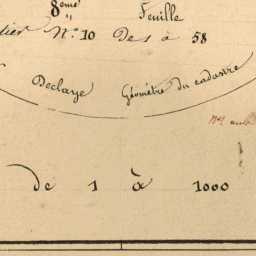 8eme Feuille
N.º 10 De 1 à 58
Declaye Géomètre du cadastre
de 1 à 1000